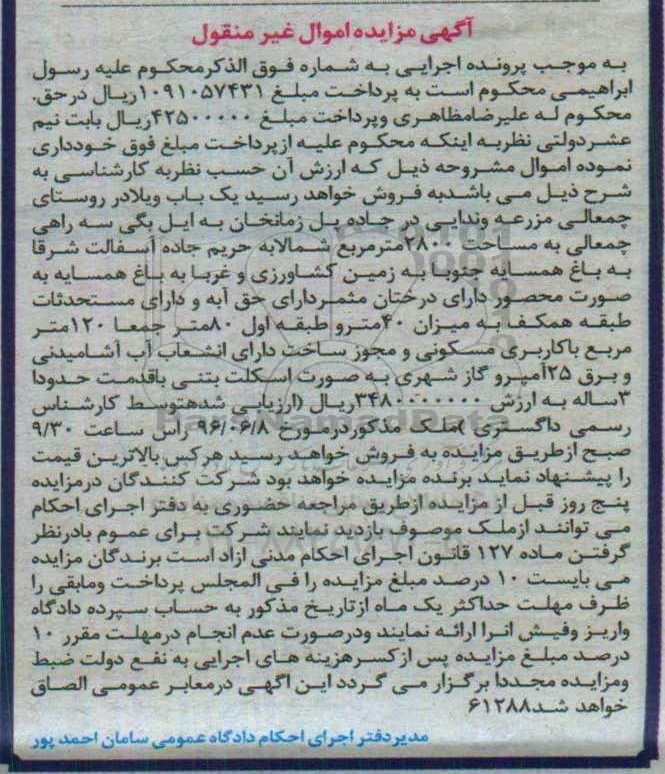 آگهی مزایده اموال غیر منقول
به موجب پرونده اجرایی به شماره فوق الذکرمحکوم علیه رسول
ابراهیمی محکوم است به پرداخت مبلغ ۱۰۹۱۰۵۷۴۳۱ریال درحق.
محکوم له علیرضامظاهری وپرداخت مبلغ ۴۲۵۰۰۰۰۰ریال بابت نیم
عشردولتی نظربه اینکه محکوم علیه ازپرداخت مبلغ فوق خودداری
نموده اموال مشروحه ذیل که ارزش آن حسب نظریه کارشناسی به
شرح ذیل می باشدبه فروش خواهد رسید یک باب ویلادر روستای
چمعالی مزرعه وندایی در جاده پل زمانخان به ایل بگی سه راهی
چمعالی به مساحت ۲۸۰۰مترمربع شمالابه حریم جاده آسفالت شرقا
به باغ همسایه جنوبا به زمین کشاورزی و غربا به باغ همسایه به
صورت محصور دارای درختان مثمردارای حق آبه و دارای مستحدثات
طبقه همکف به میزان ۴۰مترو طبقه اول ۸۰متر جمعا ۱۲۰متر
مربع باکاربری مسکونی و مجوز ساخت دارای انشعاب آب آشامیدنی
و برق ۲۵آمپرو گاز شهری به صورت اسکلت بتنی باقدمت حدودا
۳ساله به ارزش ۳۴۸۰۰۰۰۰۰۰ریال (ارزیابی شدهتوسط کارشناس
رسمی داگستری )ملک مذکوردرمورخ ۹۶/۰۶/۸ راس ساعت ۹/۳۰
صبح ازطریق مزایده به فروش خواهد رسید هرکس بالاترین قیمت
را پیشنهاد نماید برنده مزایده خواهد بود شرکت کنندگان درمزایده
پنج روز قبل از مزایده ازطریق مراجعه حضوری به دفتر اجرای احکام
می توانند ازملک موصوف بازدید نمایند شرکت برای عموم بادرنظر
گرفتن ماده ۱۲۷ قانون اجرای احکام مدنی ازاد است برندگان مزایده
می بایست ۱۰ درصد مبلغ مزایده را فی المجلس پرداخت ومابقی را
ظرف مهلت حداکثر یک ماه ازتاریخ مذکور به حساب سپرده دادگاه
واریز وفیش انرا ارائه نمایند ودرصورت عدم انجام درمهلت مقرر ۱۰
درصد مبلغ مزایده پس ازکسرهزینه های اجرایی به نفع دولت ضبط
ومزایده مجددا برگزار می گردد این آگهی درمعابر عمومی الصاق
خواهد شد۶۱۲۸۸
مدیردفتر اجرای احکام دادگاه عمومی سامان احمد پور